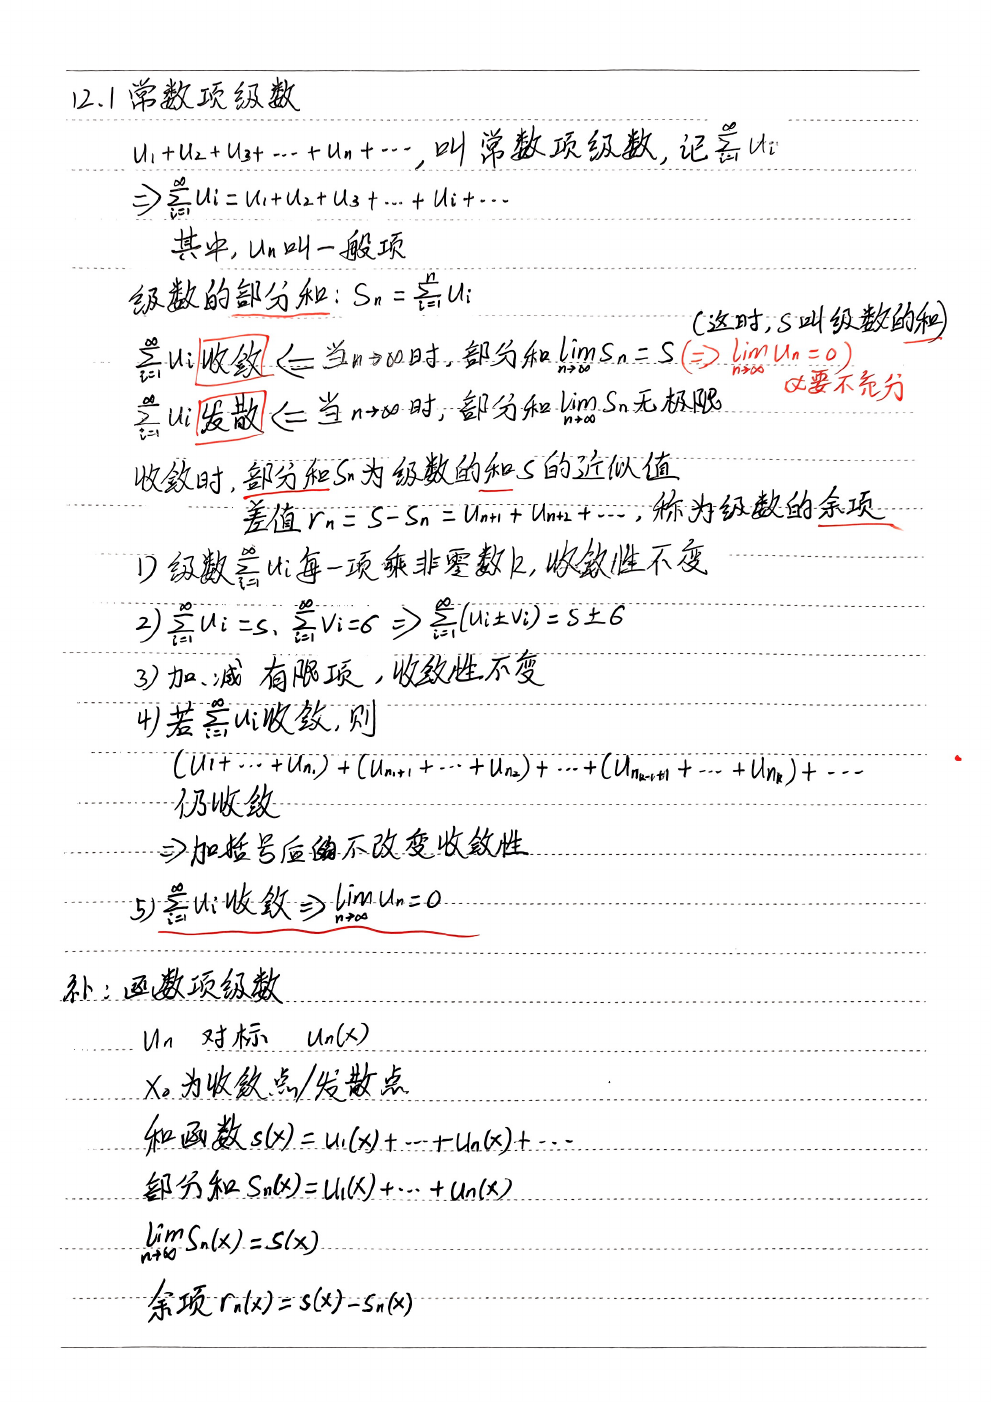 12.1 常数项级数
u₁+u₂+u₃+…+uₙ+…, 叫常数项级数, 记 ∑_{i=1}^{∞} uᵢ
⇒ ∑_{i=1}^{∞} uᵢ = u₁+u₂+u₃+…+uᵢ+…
其中, uₙ叫一般项
级数的部分和: Sₙ = ∑_{i=1}^{n} uᵢ
(这时, S叫级数的和)
∑_{i=1}^{∞} uᵢ 收敛 ⇐ 当n→∞时, 部分和 lim_{n→∞} Sₙ = S (⇒ lim_{n→∞} uₙ = 0)
必要不充分
∑_{i=1}^{∞} uᵢ 发散 ⇐ 当n→∞时, 部分和 lim_{n→∞} Sₙ 无极限
收敛时, 部分和Sₙ为级数的和S的近似值
差值 rₙ = S-Sₙ = uₙ₊₁+uₙ₊₂+…, 称为级数的余项
1) 级数 ∑_{i=1}^{∞} uᵢ 每一项乘非零数k, 收敛性不变
2) ∑_{i=1}^{∞} uᵢ = s、∑_{i=1}^{∞} vᵢ = 6 ⇒ ∑_{i=1}^{∞} (uᵢ±vᵢ) = s±6
3) 加、减 有限项, 收敛性不变
4) 若 ∑_{i=1}^{∞} uᵢ 收敛, 则
(u₁+…+u_{n₁})+(u_{n₁+1}+…+u_{n₂})+…+(u_{n_{k-1}+1}+…+u_{n_k})+…
仍收敛
⇒ 加括号后不改变收敛性
5) ∑_{i=1}^{∞} uᵢ 收敛 ⇒ lim_{n→∞} uₙ = 0
补: 函数项级数
uₙ 对标 uₙ(x)
x₀为收敛点/发散点
和函数 s(x) = u₁(x)+…+uₙ(x)+…
部分和 Sₙ(x) = u₁(x)+…+uₙ(x)
lim_{n→∞} Sₙ(x) = S(x)
余项 rₙ(x) = s(x)-sₙ(x)